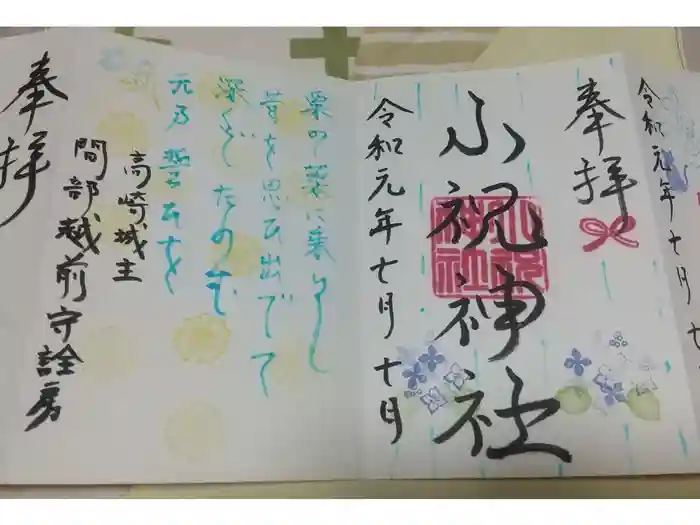 令和元年十月十
奉拝
小祝神社
小祝神社
令和元年十月十日
昔を思ひ出でて
深くぞたのむ
元乃誓ひを
高崎城主
間部越前守詮房
奉拝